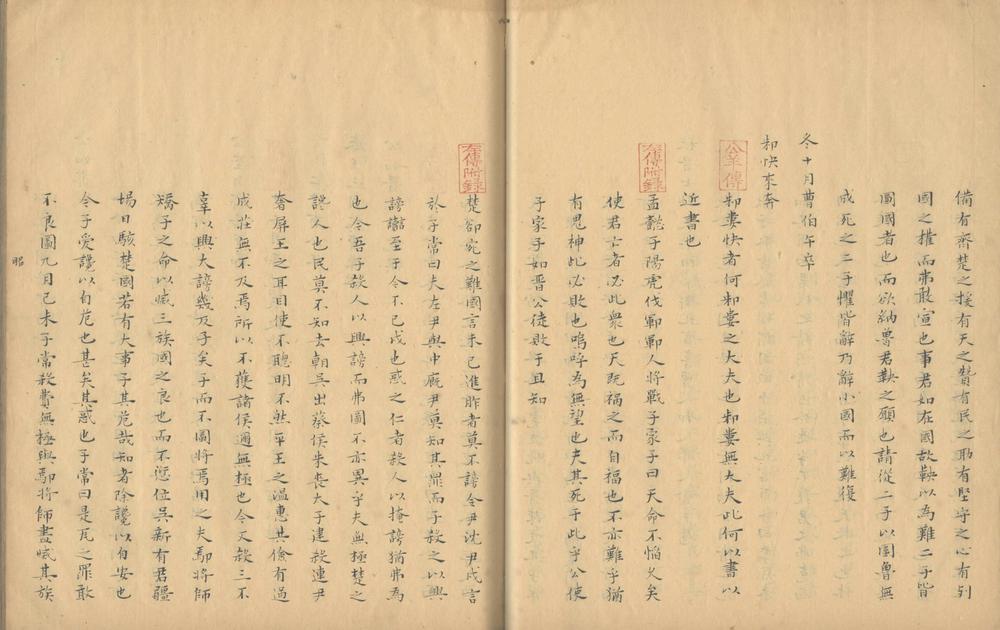 備有齊楚之援有天之贊有民之助有堅守之心有列
國之權而弗敢宣也事君如在國故鞅以為難二子皆
圖國者也而欲納魯君鞅之願也請從二子以圍魯無
成死之二子懼皆辭乃辭小國而以難復
冬十月曹伯午卒
邾快來奔
公羊傳
邾婁快者何邾婁之大夫也邾婁無大夫此何以書以
近書也
左傳附錄
孟懿子陽虎伐鄆鄆人將戰子家子曰天命不慆久矣
使君亡者必此衆也天既福之而自福也不亦難乎猶
有鬼神此必敗也嗚呼為無望也夫其死于此乎公使
子家子如晉公徒敗于且知
左傳附錄
楚郤宛之難國言未已進胙者莫不謗令尹沈尹戌言
於子常曰夫左尹與中廄尹莫知其罪而子殺之以興
謗讟至于今不已戌也惑之仁者殺人以掩謗猶弗為
也今吾子殺人以興謗而弗圖不亦異乎夫無極楚之
讒人也民莫不知去朝吳出蔡侯朱喪大子建殺連尹
奢屏王之耳目使不聰明不然平王之溫惠共儉有過
成莊無不及焉所以不獲諸侯邇無極也今又殺三不
辜以興大謗幾及子矣子而不圖將焉用之夫鄢將師
矯子之命以滅三族國之良也而不愆位吳新有君疆
場日駭楚國若有大事子其危哉知者除讒以自安也
今子愛讒以自危也甚矣其惑也子常曰是瓦之罪敢
不良圖九月己未子常殺費無極與鄢將師盡滅其族
昭